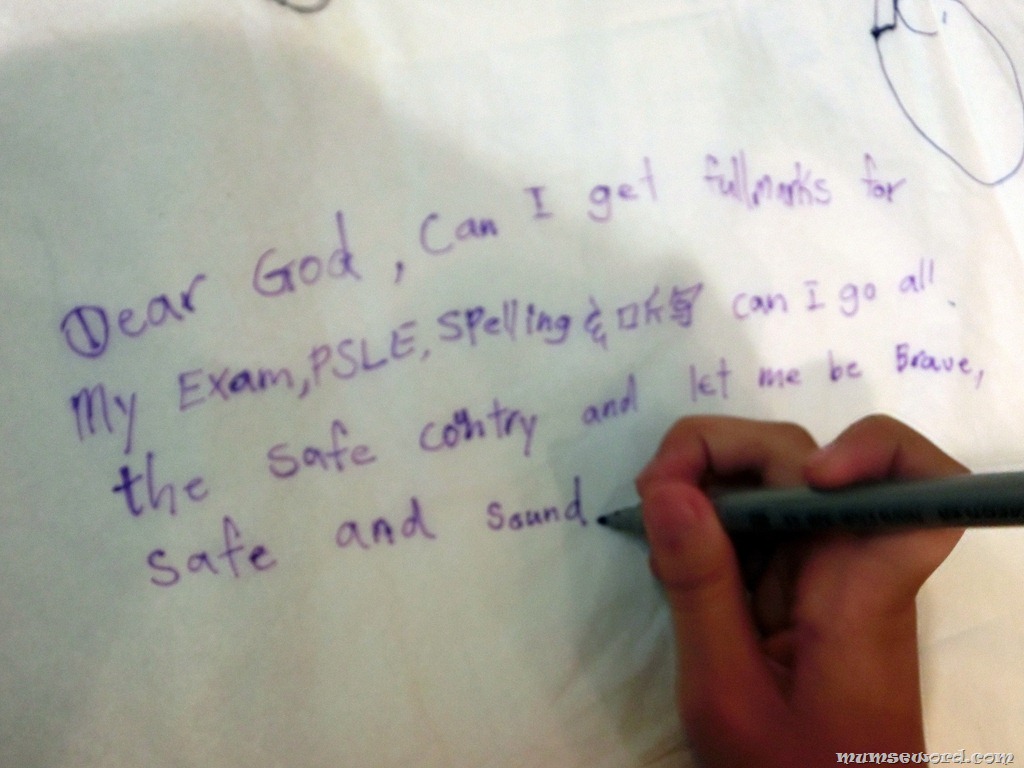 Dear God, Can I get fullmarks for
My Exam, PSLE, Spelling & 听写 can I go all
the safe contry and let me be Brave,
safe and sound
mumseword.com